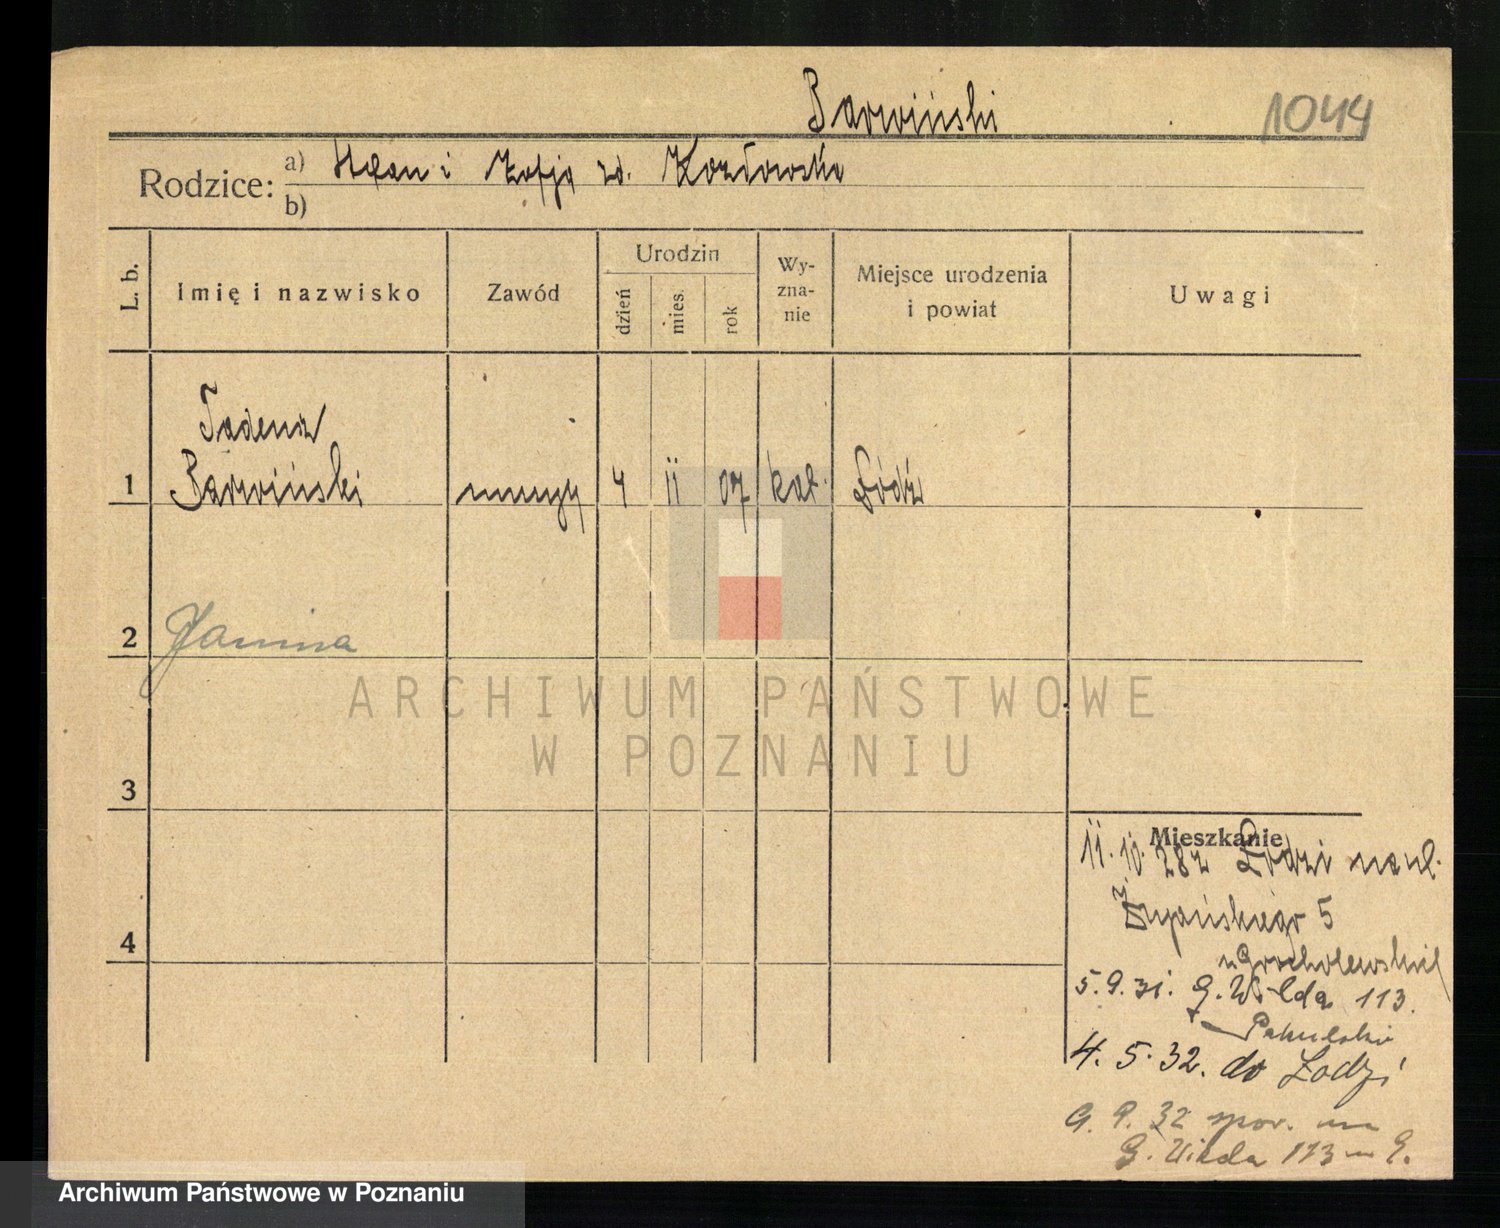 Barwiński
1044
Rodzice: a) i Zofja zd. Kozłowska
b)
L. b.
Imię i nazwisko
Zawód
Urodzin
dzień
mies.
rok
Wy-
zna-
nie
Miejsce urodzenia
i powiat
Uwagi
Tadeusz
1 Barwiński 4 11 07 kat. Łódź
2 Janina
ARCHIWUM PAŃSTWOWE
W POZNANIU
3
Mieszkanie
11.10.28 z Łodzi na ul.
5
4
5.9.31. G. Wilda 113.
4.5.32. do Łodzi
G. Wilda 113 m 9.
Archiwum Państwowe w Poznaniu